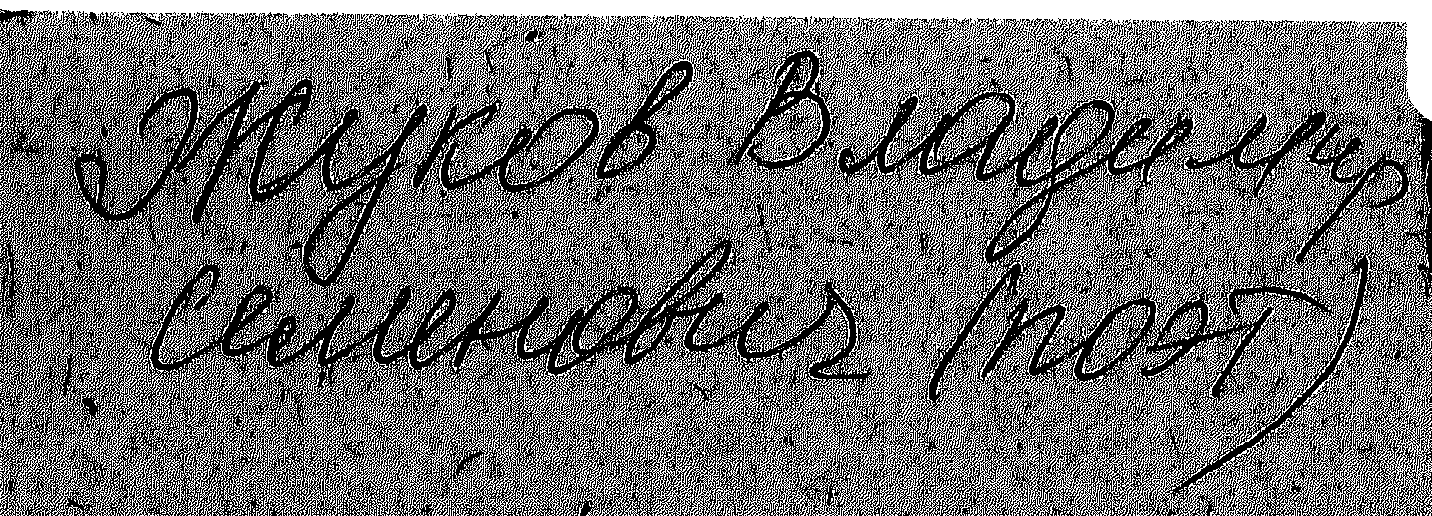 Жуков Владимир
Семенович (поэт)